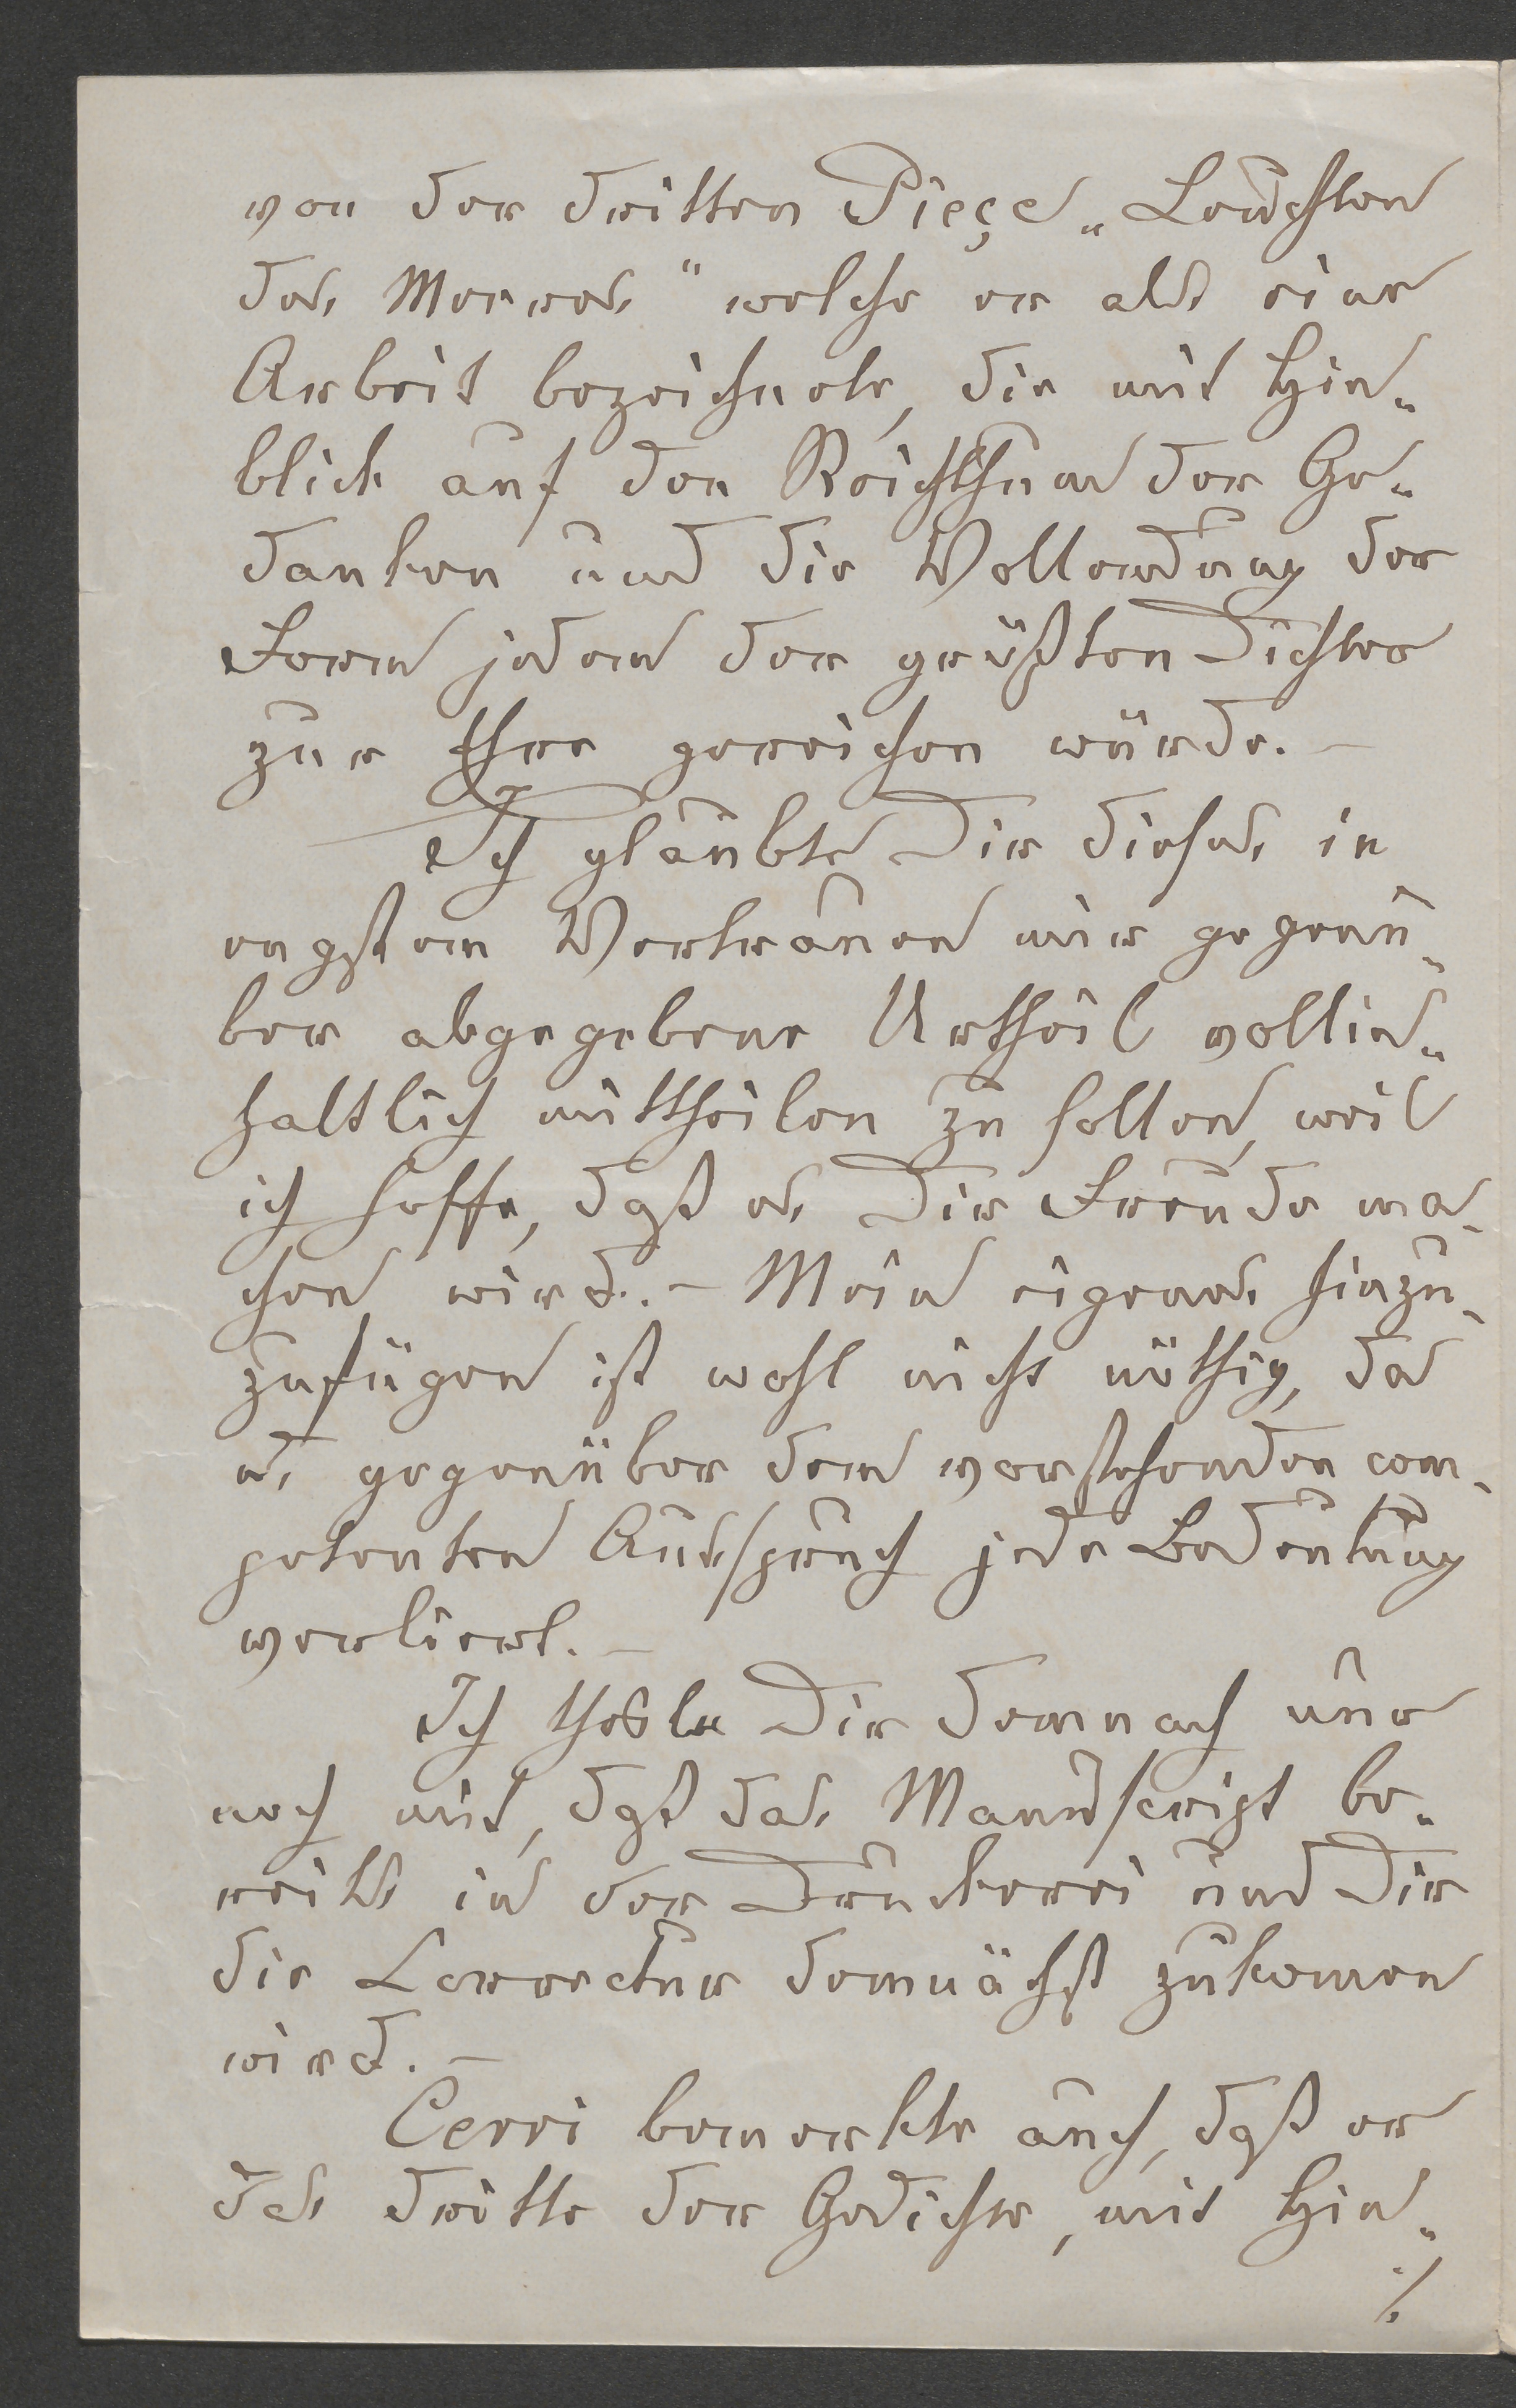 von der dritten Pieçe „Leuchten
des Meeres“ welche er als eine
Arbeit bezeichnete, die mit Hin„
blick auf den Reichthum der Ge„
danken und die Vollendung der
Form jedem der größten Dichter
zur Ehre gereichen würde. –
Ich glaubte Dir dieses in
engstem Vertrauen mir gegenü„
ber abgegebene Urtheil vollin„
haltlich mittheilen zu sollen, weil
ich hoffe, daß es Dir Freude ma„
chen wird. – Mein eigenes hinzu„
zufügen ist wohl nicht nöthig, da
es gegenüber dem vorstehenden com„
petenten Ausspruch jede Bedeutung
verliert. –
Ich theile Dir demnach nur
noch mit, daß das Manuscript be„
reits in der Druckerei und Dir
die Correctur demnächst zukomen
wird. –
Cerri bemerkte auch, daß er
das dritte der Gedichte, mit Hin„
./.